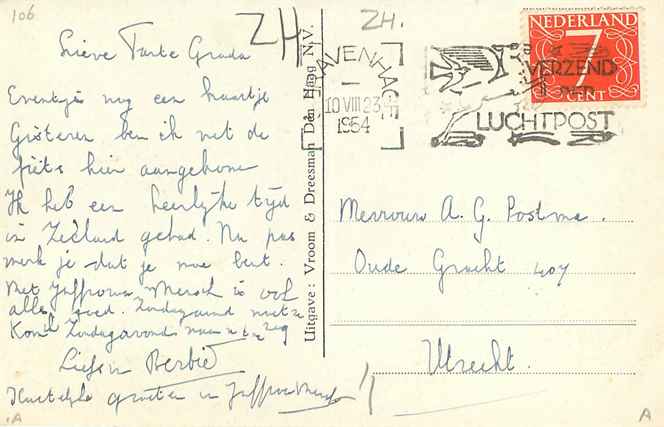 106
ZH
ZH.
Lieve Tante Grada
Eventjes nog een kaartje
Gisteren ben ik met de
fiets hier aangekomen
Ik heb een heerlijke tijd
in Zeeland gehad. Nu pas
merk je dat je moe bent.
Met Juffrouw Mersch is ook
alles goed. Zondagavond
Kom Zondagavond
Liefs Berbie
Hartelijke groeten Juffrouw Mersch
A
Uitgave: Vroom & Dreesman Den Haag N.V.
'S GRAVENHAGE
10 VIII 23
1954
VERZEND
PER
LUCHTPOST
NEDERLAND
7
CENT
Mevrouw A. G. Postma.
Oude Gracht 407
Utrecht.
A